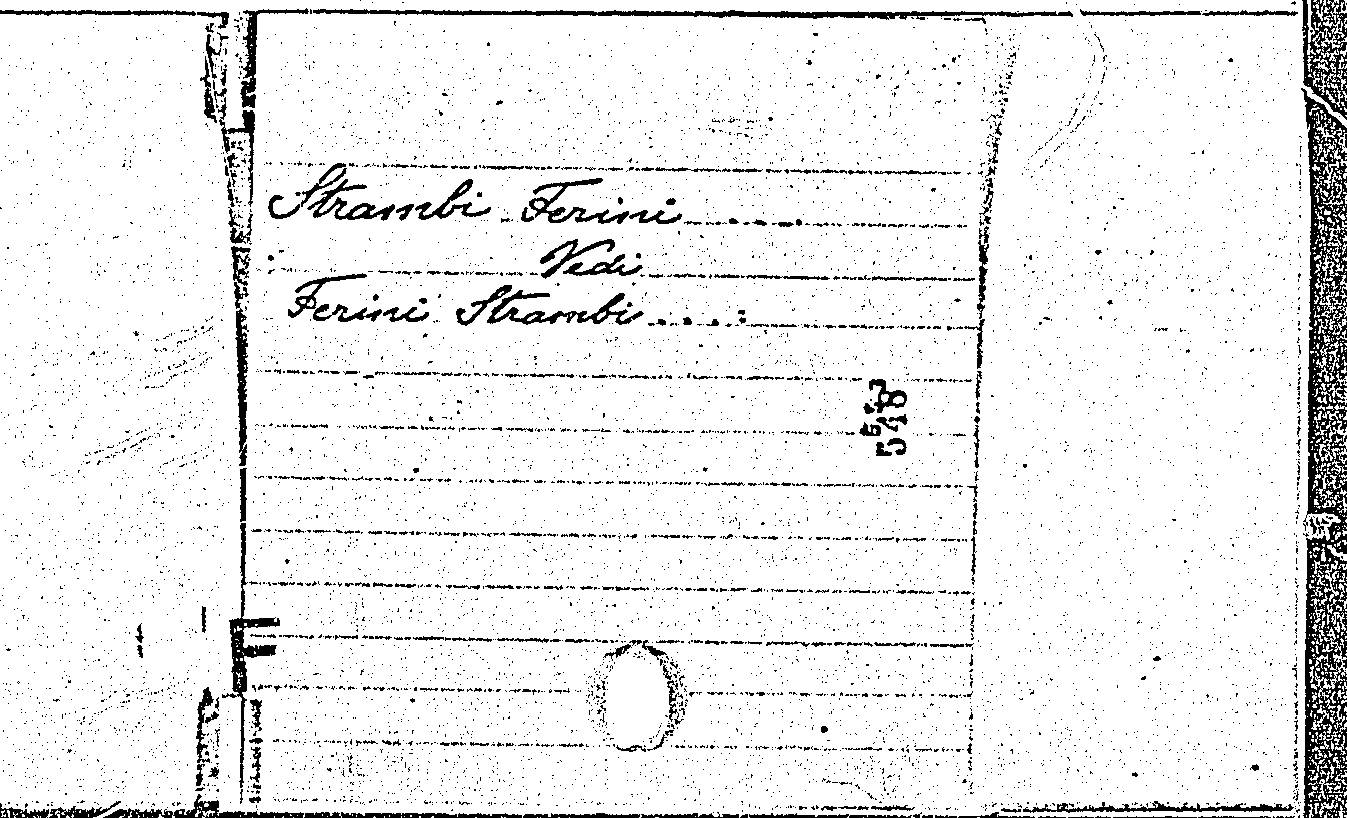 Strambi Ferini ....
Vedi
Ferini Strambi ....
548